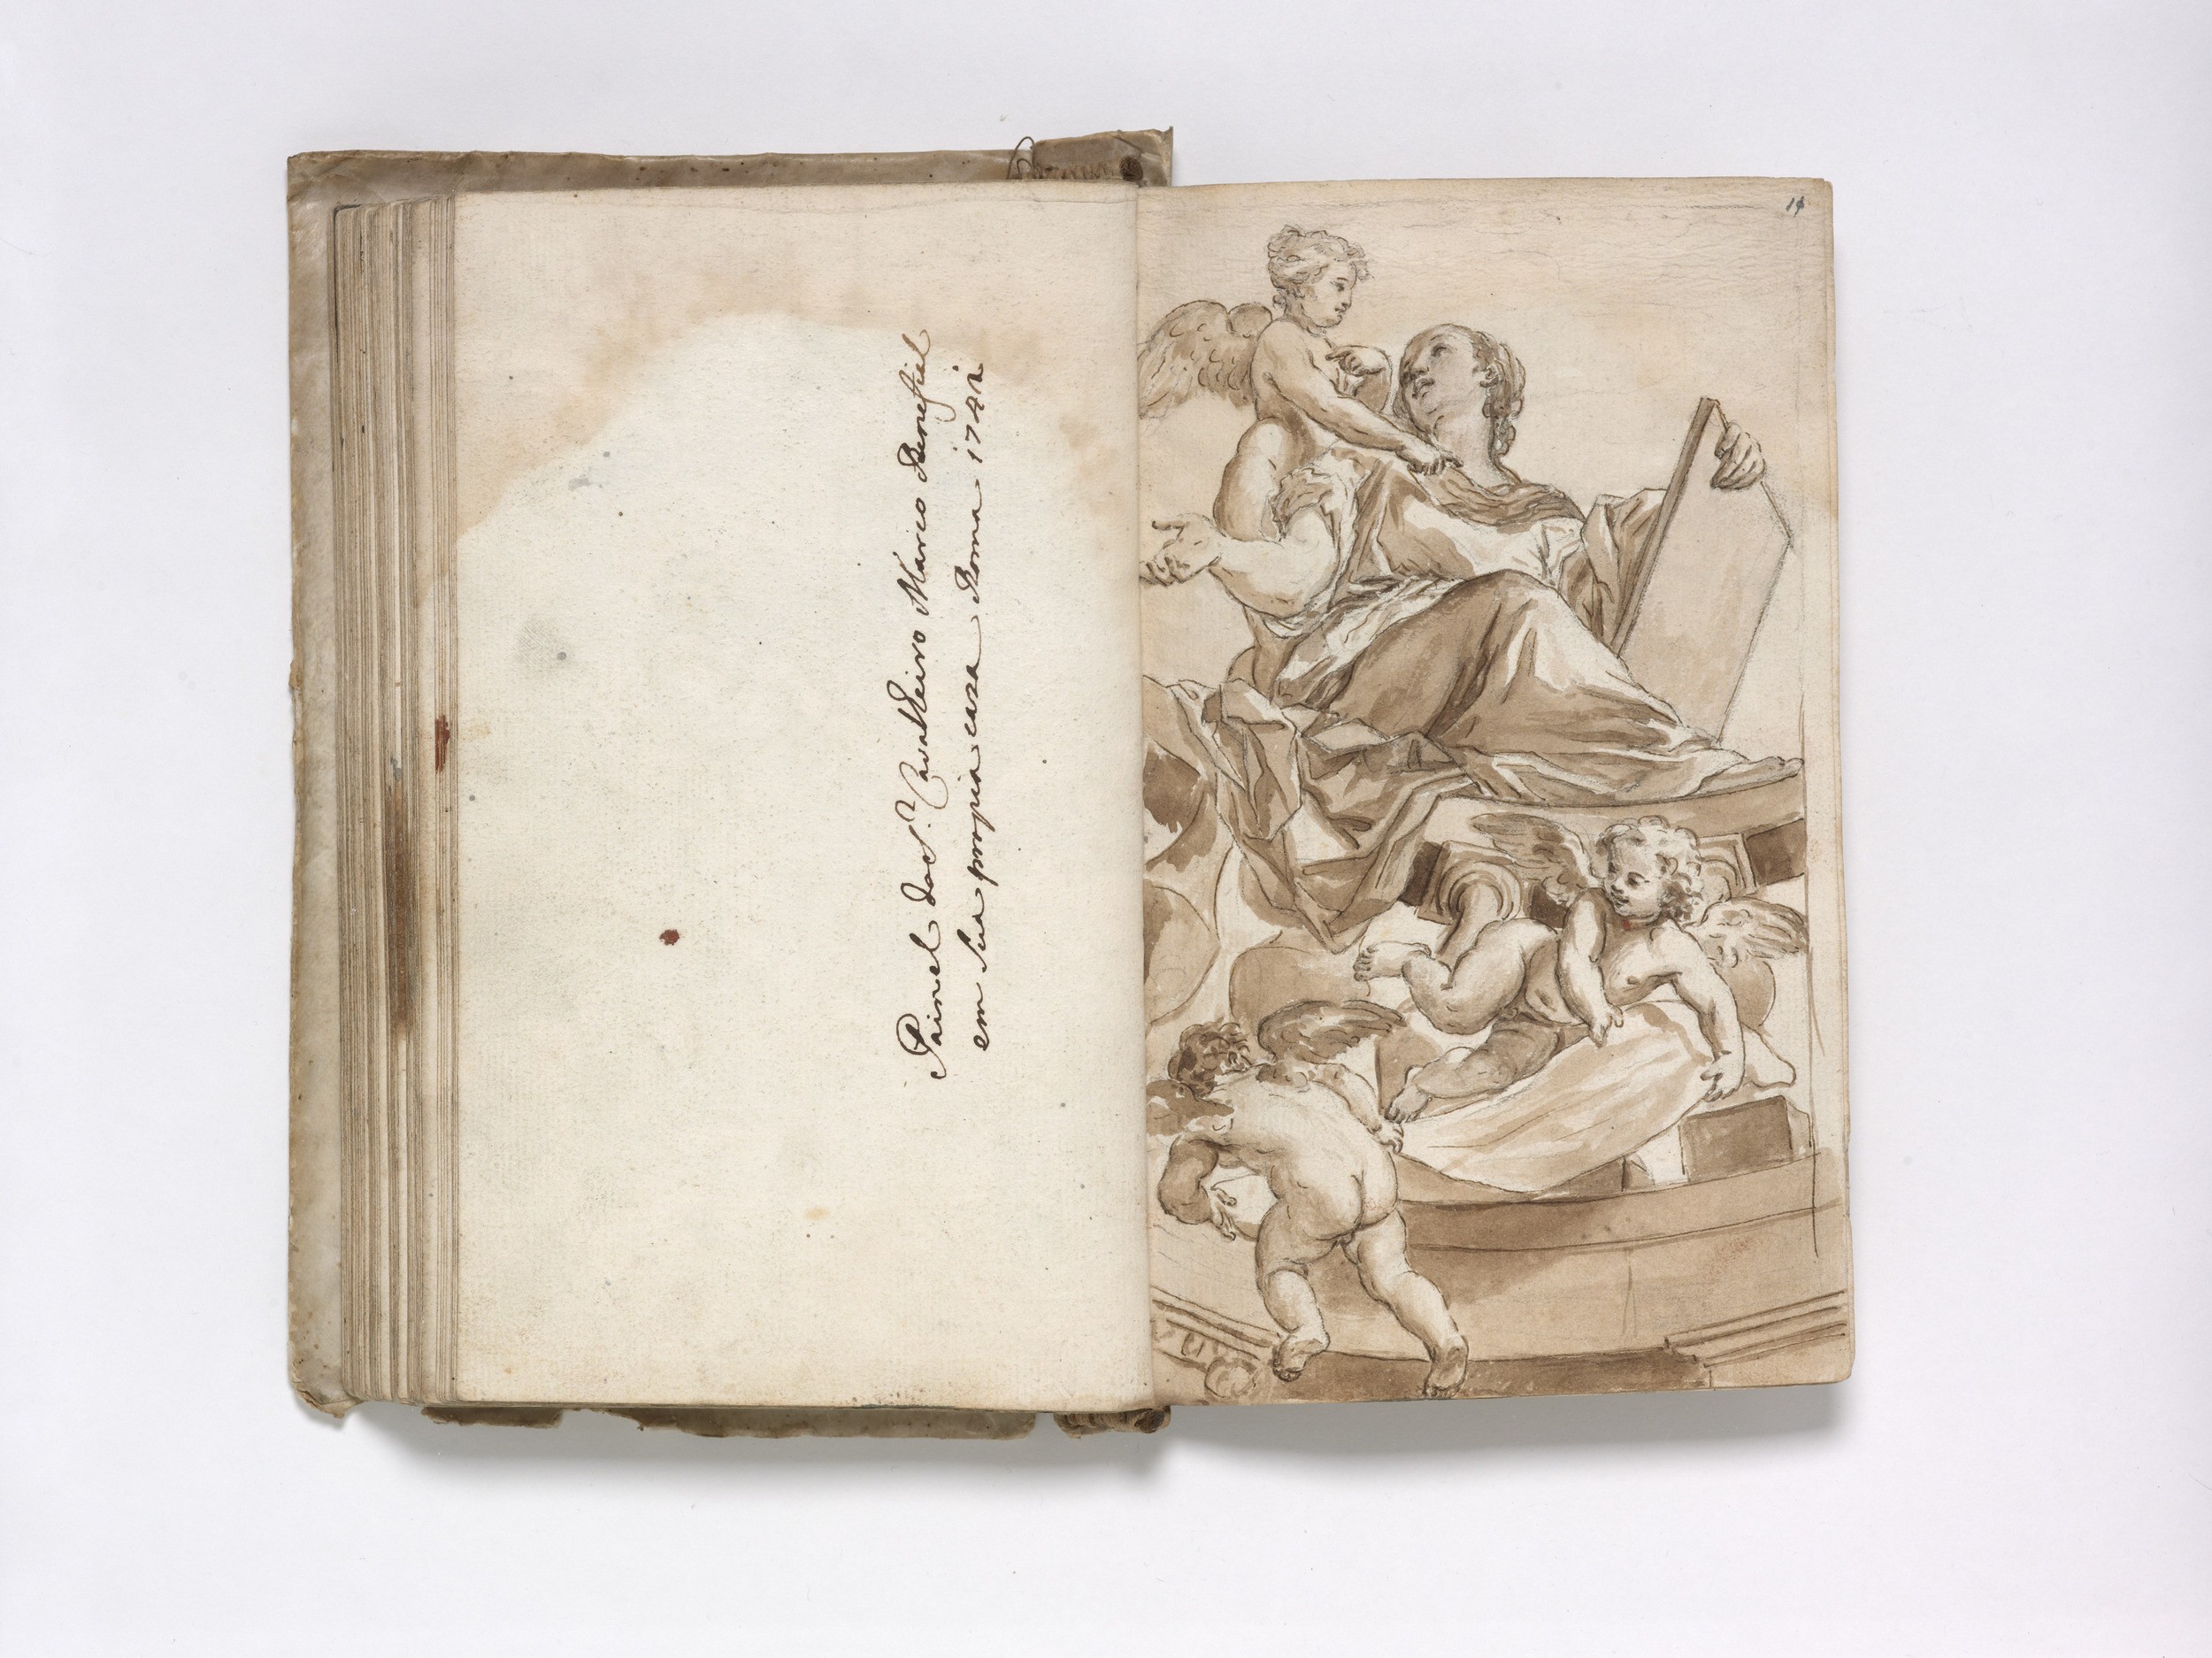 Painel do S.r Cavalleiro Marco Benefial
em Sua propria caza Roma 1742
14